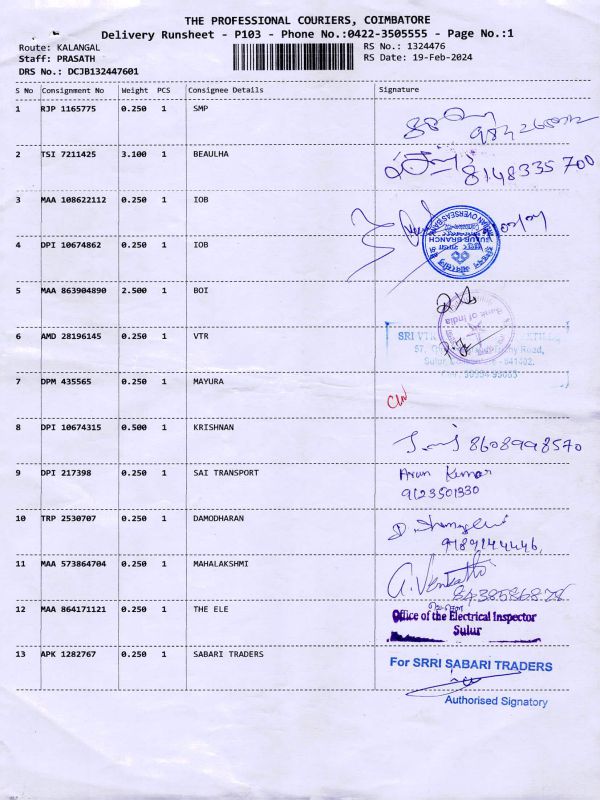 THE PROFESSIONAL COURIERS, COIMBATORE
Delivery Runsheet - P103 - Phone No.:0422-3505555 - Page No.:1
Route: KALANGAL
RS No.: 1324476
Staff: PRASATH
RS Date: 19-Feb-2024
DRS No.: DCJB132447601
S No Consignment No Weight PCS Consignee Details Signature
1 RJP 1165775 0.250 1 SMP
2 TSI 7211425 3.100 1 BEAULHA 8148335700
3 MAA 108622112 0.250 1 IOB
INDIAN OVERSEAS BANK
SULUR BRANCH
4 DPI 10674862 0.250 1 IOB
5 MAA 863904890 2.500 1 BOI
Bank of India
6 AMD 28196145 0.250 1 VTR SRI
Road,
Sulur, - 641402.
7 DPM 435565 0.250 1 MAYURA
8 DPI 10674315 0.500 1 KRISHNAN 8608998570
9 DPI 217398 0.250 1 SAI TRANSPORT Arun Kumar
9123501330
10 TRP 2530707 0.250 1 DAMODHARAN
9189144446,
11 MAA 573864704 0.250 1 MAHALAKSHMI
12 MAA 864171121 0.250 1 THE ELE Office of the Electrical Inspector
Sulur
13 APK 1282767 0.250 1 SABARI TRADERS For SRRI SABARI TRADERS
Authorised Signatory